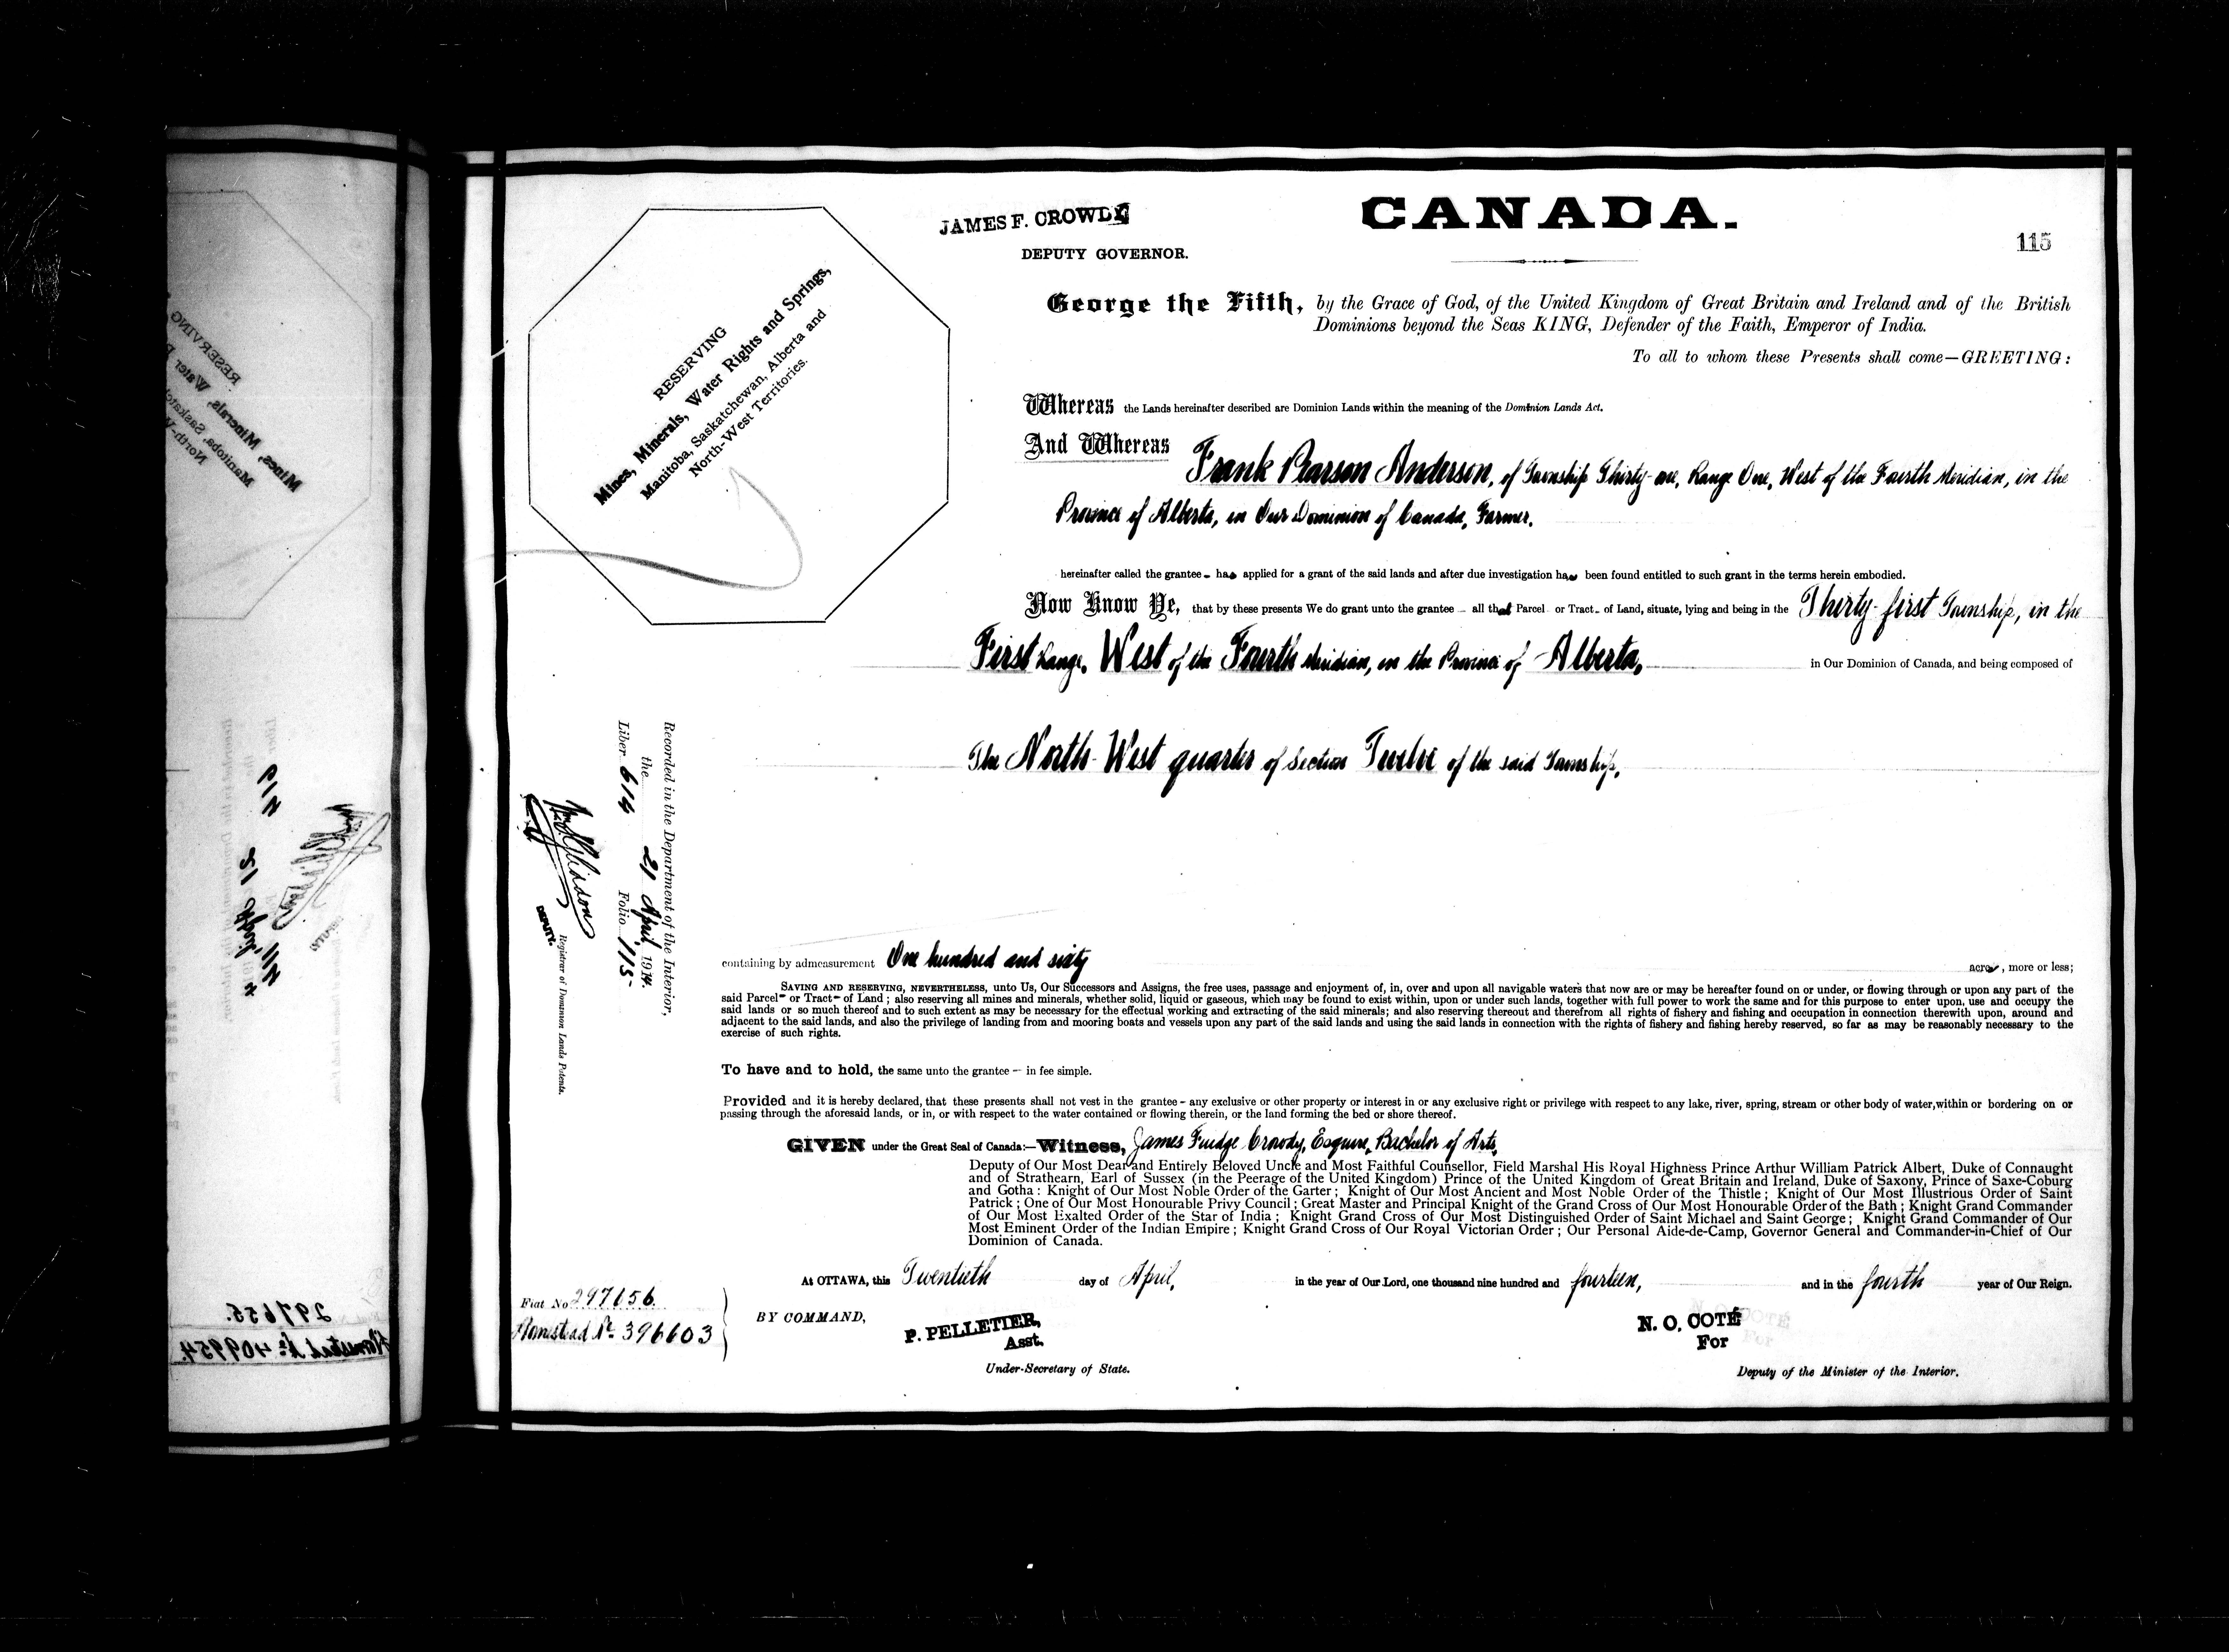 JAMES F. CROWDY
DEPUTY GOVERNOR.
CANADA.
115
RESERVING
Mines, Minerals, Water Rights and Springs,
Manitoba, Saskatchewan, Alberta and
North-West Territories.
George the Fifth, by the Grace of God, of the United Kingdom of Great Britain and Ireland and of the British
Dominions beyond the Seas KING, Defender of the Faith, Emperor of India.
To all to whom these Presents shall come—GREETING:
Whereas the Lands hereinafter described are Dominion Lands within the meaning of the Dominion Lands Act.
And Whereas Frank Pearson Anderson, of Township Thirty-one, Range One, West of the Fourth Meridian, in the
Province of Alberta, in Our Dominion of Canada, Farmer,
hereinafter called the grantee - has applied for a grant of the said lands and after due investigation has been found entitled to such grant in the terms herein embodied.
Now Know Ye, that by these presents We do grant unto the grantee - all that Parcel or Tract - of Land, situate, lying and being in the Thirty-first Township, in the
First Range, West of the Fourth Meridian, in the Province of Alberta, in Our Dominion of Canada, and being composed of
The North-West quarter of Section Twelve of the said Township,
Recorded in the Department of the Interior,
the 21 April, 1914.
Liber 614 Folio 115-
DEPUTY.
Registrar of Dominion Lands Patents.
containing by admeasurement One hundred and sixty acres, more or less;
SAVING AND RESERVING, NEVERTHELESS, unto Us, Our Successors and Assigns, the free uses, passage and enjoyment of, in, over and upon all navigable waters that now are or may be hereafter found on or under, or flowing through or upon any part of the
said Parcel - or Tract - of Land; also reserving all mines and minerals, whether solid, liquid or gaseous, which may be found to exist within, upon or under such lands, together with full power to work the same and for this purpose to enter upon, use and occupy the
said lands or so much thereof and to such extent as may be necessary for the effectual working and extracting of the said minerals; and also reserving thereout and therefrom all rights of fishery and fishing and occupation in connection therewith upon, around and
adjacent to the said lands, and also the privilege of landing from and mooring boats and vessels upon any part of the said lands and using the said lands in connection with the rights of fishery and fishing hereby reserved, so far as may be reasonably necessary to the
exercise of such rights.
To have and to hold, the same unto the grantee - in fee simple.
Provided and it is hereby declared, that these presents shall not vest in the grantee - any exclusive or other property or interest in or any exclusive right or privilege with respect to any lake, river, spring, stream or other body of water, within or bordering on or
passing through the aforesaid lands, or in, or with respect to the water contained or flowing therein, or the land forming the bed or shore thereof.
GIVEN under the Great Seal of Canada:—Witness, James Fudge Crowdy, Esquire, Bachelor of Arts,
Deputy of Our Most Dear and Entirely Beloved Uncle and Most Faithful Counsellor, Field Marshal His Royal Highness Prince Arthur William Patrick Albert, Duke of Connaught
and of Strathearn, Earl of Sussex (in the Peerage of the United Kingdom) Prince of the United Kingdom of Great Britain and Ireland, Duke of Saxony, Prince of Saxe-Coburg
and Gotha: Knight of Our Most Noble Order of the Garter; Knight of Our Most Ancient and Most Noble Order of the Thistle; Knight of Our Most Illustrious Order of Saint
Patrick; One of Our Most Honourable Privy Council; Great Master and Principal Knight of the Grand Cross of Our Most Honourable Order of the Bath; Knight Grand Commander
of Our Most Exalted Order of the Star of India; Knight Grand Cross of Our Most Distinguished Order of Saint Michael and Saint George; Knight Grand Commander of Our
Most Eminent Order of the Indian Empire; Knight Grand Cross of Our Royal Victorian Order; Our Personal Aide-de-Camp, Governor General and Commander-in-Chief of Our
Dominion of Canada.
At OTTAWA, this Twentieth day of April, in the year of Our Lord, one thousand nine hundred and fourteen, and in the fourth year of Our Reign.
Fiat No 297656.
Homestead No. 396603
BY COMMAND,
P. PELLETIER,
Asst.
Under-Secretary of State.
N. O. COTÉ
For
Deputy of the Minister of the Interior.